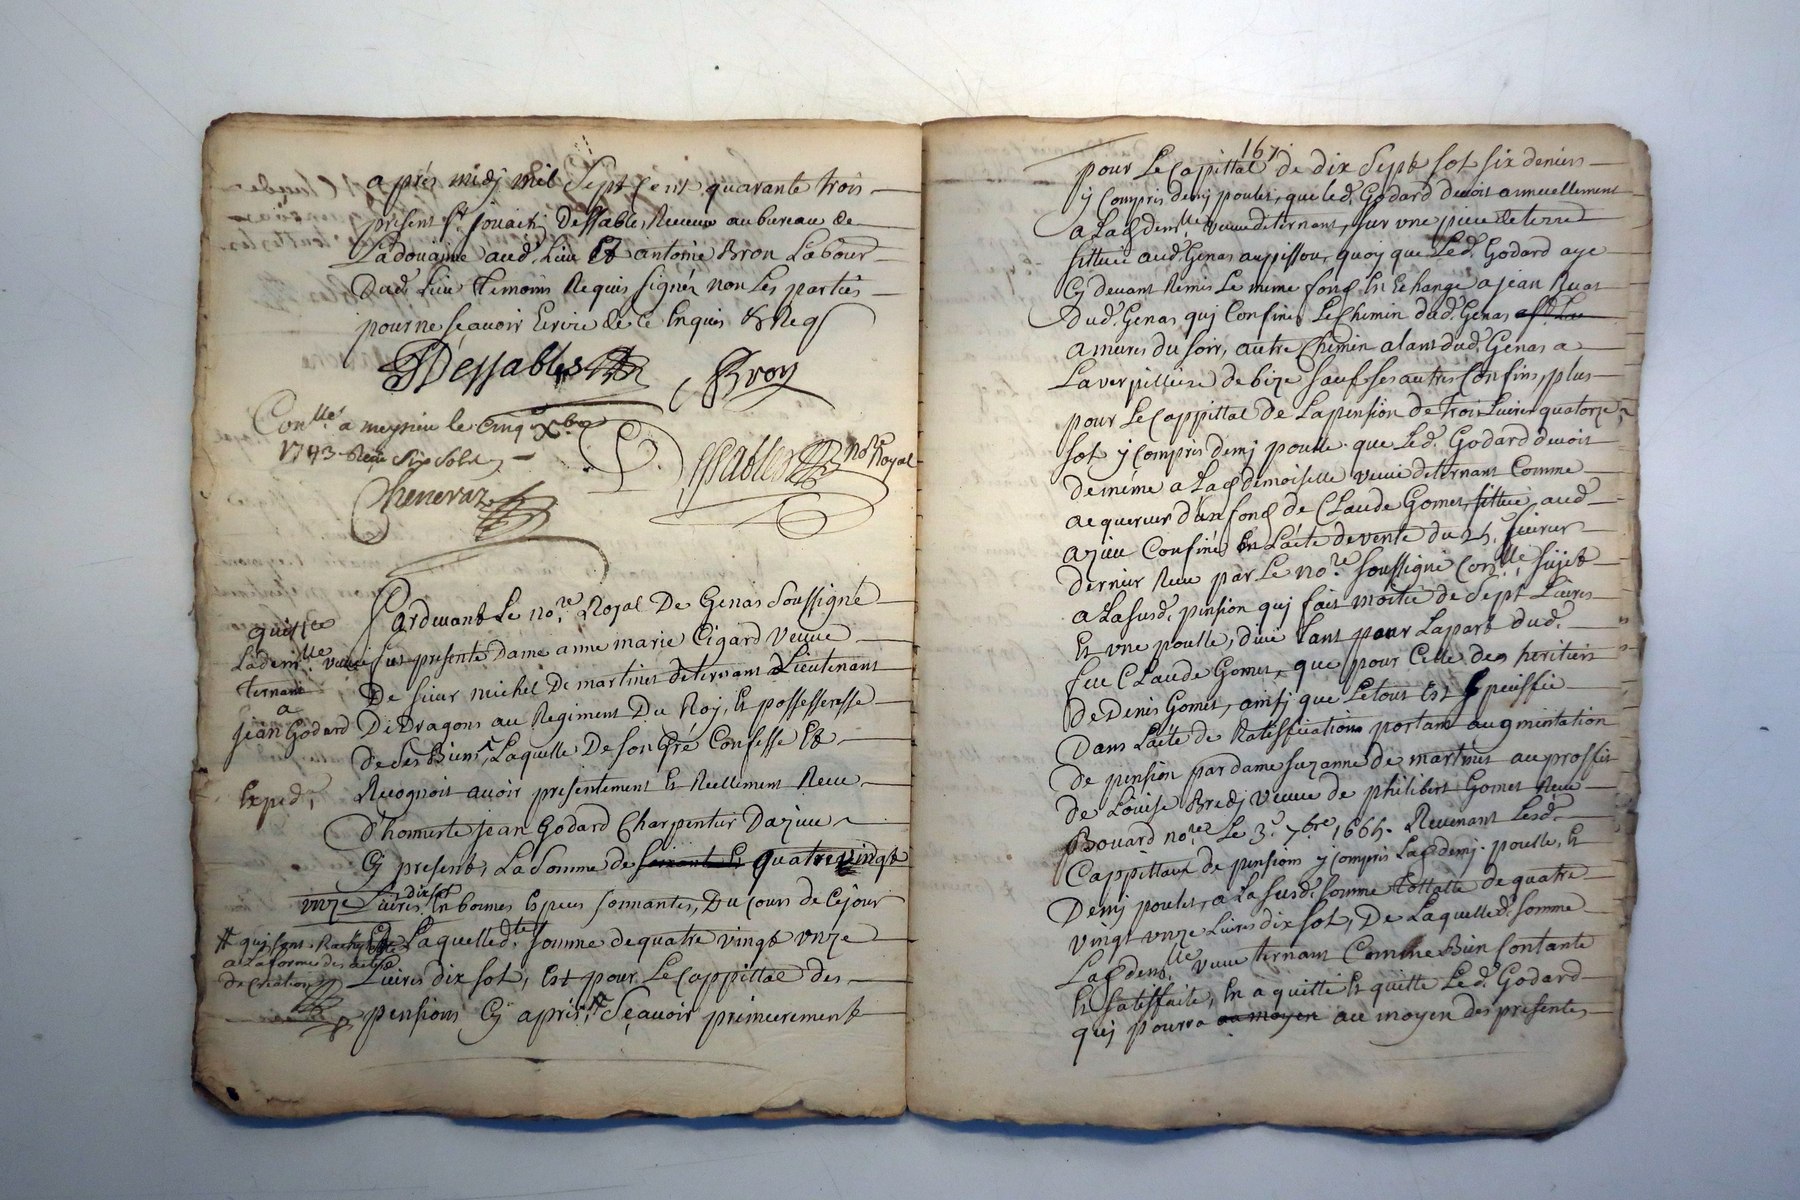 après midj mil Sept Cent quarante trois
présent Sr. jouach Dessables, Receveur au bureau de
La douanne aud. Lieu Et antoine Bron Labour
Dud. Lieu temoins Requis signés non Les parties
pour ne sçavoir Ecrire de ce Enquis & Req
Dessables Bron
Conlle. a meyzieu le cinq Xbre
1743 Reçu Six Sols
Dessables nore. Royal
Cheneraz
Pardevant Le nore. Royal De Genas Soussigné
fut presente Dame anne marie Cigard veuve
De sieur michel De martinet de ternant Lieutenant
De Dragons au Regiment Du Roy, Et possesseresse
de ses Biens, Laquelle De son Gré Confesse Et
Recognoit avoir presentement Et Reellement Receu
d'honneste jean Godard Charpentier Dazieu
Cy present, La Somme de soixante Et quatre vingt
unze Livres dix sol En bonnes Especes sonnantes, Du Cours de Cejour
De Laquelle dte. somme de quatre vingt unze
Livres dix sol, Est pour Le Cappittal des
pensions Cy aprés, # Sçavoir premierement
quittce
Lademlle. veuve
Ternant
a
jean Godard
Exped.
# quj sont Rachetable
a La forme des actes
de Création
167.
pour Le Capittal de dix Sept sol six deniers
y Compris demj poulet, que led. Godard devoit annuellement
a Lad. demlle. veuve de ternant, sur une piece de terre
sittuée aud. Genas appissou, quoy que Led. Godard aye
Cy devant Remis Le meme fond En Echange a jean Ruat
Dud. Genas quj Confine Le Chemin dud. Genas
a mures du soir, autre Chemin alant dud. Genas a
La verpilliere de bize sauf ses autres Confins, plus
pour Le Cappittal de La pension de trois Livres quatorze
sol y Compris demj poulle que Led. Godard devoit
de meme a Lad. demoiselle veuve de ternant Comme
acquereur d'un fond de Claude Gomet, sittué aud.
azieu Confiné En L'acte de vente du 25. fevrier
dernier Receu par Le nore. soussigné Conlle., sujet
a La susd. pension quj fait moitié de Sept Livres
Et une poulle, düe tant pour La part dud.
feu Claude Gomet, que pour Celle des heritiers
de Denis Gomet, ainsj que Le tout Est Speiffié
Dans L'acte de Ratiffication portant augmentation
de pension par dame suzanne de martinet au proffit
de Loüise Bredj veuve de philibert Gomet Receu
Bouard nore. Le 3e. 7bre 1665. Revenant Lesd.
Cappittaux de pensions y Compris Lesd. demj poulle, Et
Demj poulet, a La susd. somme tottalle de quatre
vingt unze Livres dix sol, De Laquelle d. somme
Lad. demlle. veuve ternant Comme Bien Contante
Et satisfaite, En a quitté Et quitte Led. Godard
quj pourra au moyen au moyen des presentes